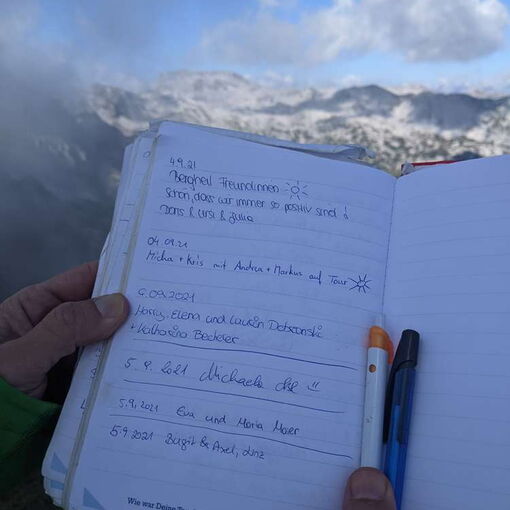 4.9.21
Bergheil Freundinnen
Schön, dass wir immer so positiv sind !
Doris & Ursi & Julia
04.09.21
Micha + Kris mit Andrea + Markus auf Tour
.09.2021
Harry, Elena und
+ Katharina
5. 9. 2021 Michaela !!
5.9.2021 Eva und Maria Maier
5.9.2021 Birgit & Axel, Linz
Wie war Deine